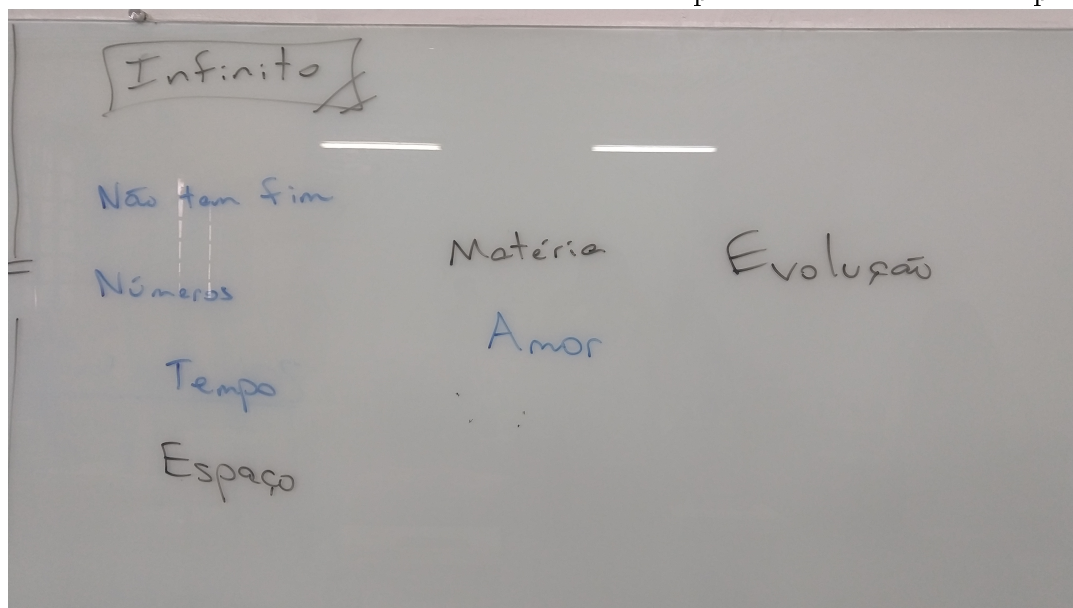 Infinito
Não tem fim
Números
Tempo
Espaço
Matéria
Amor
Evolução